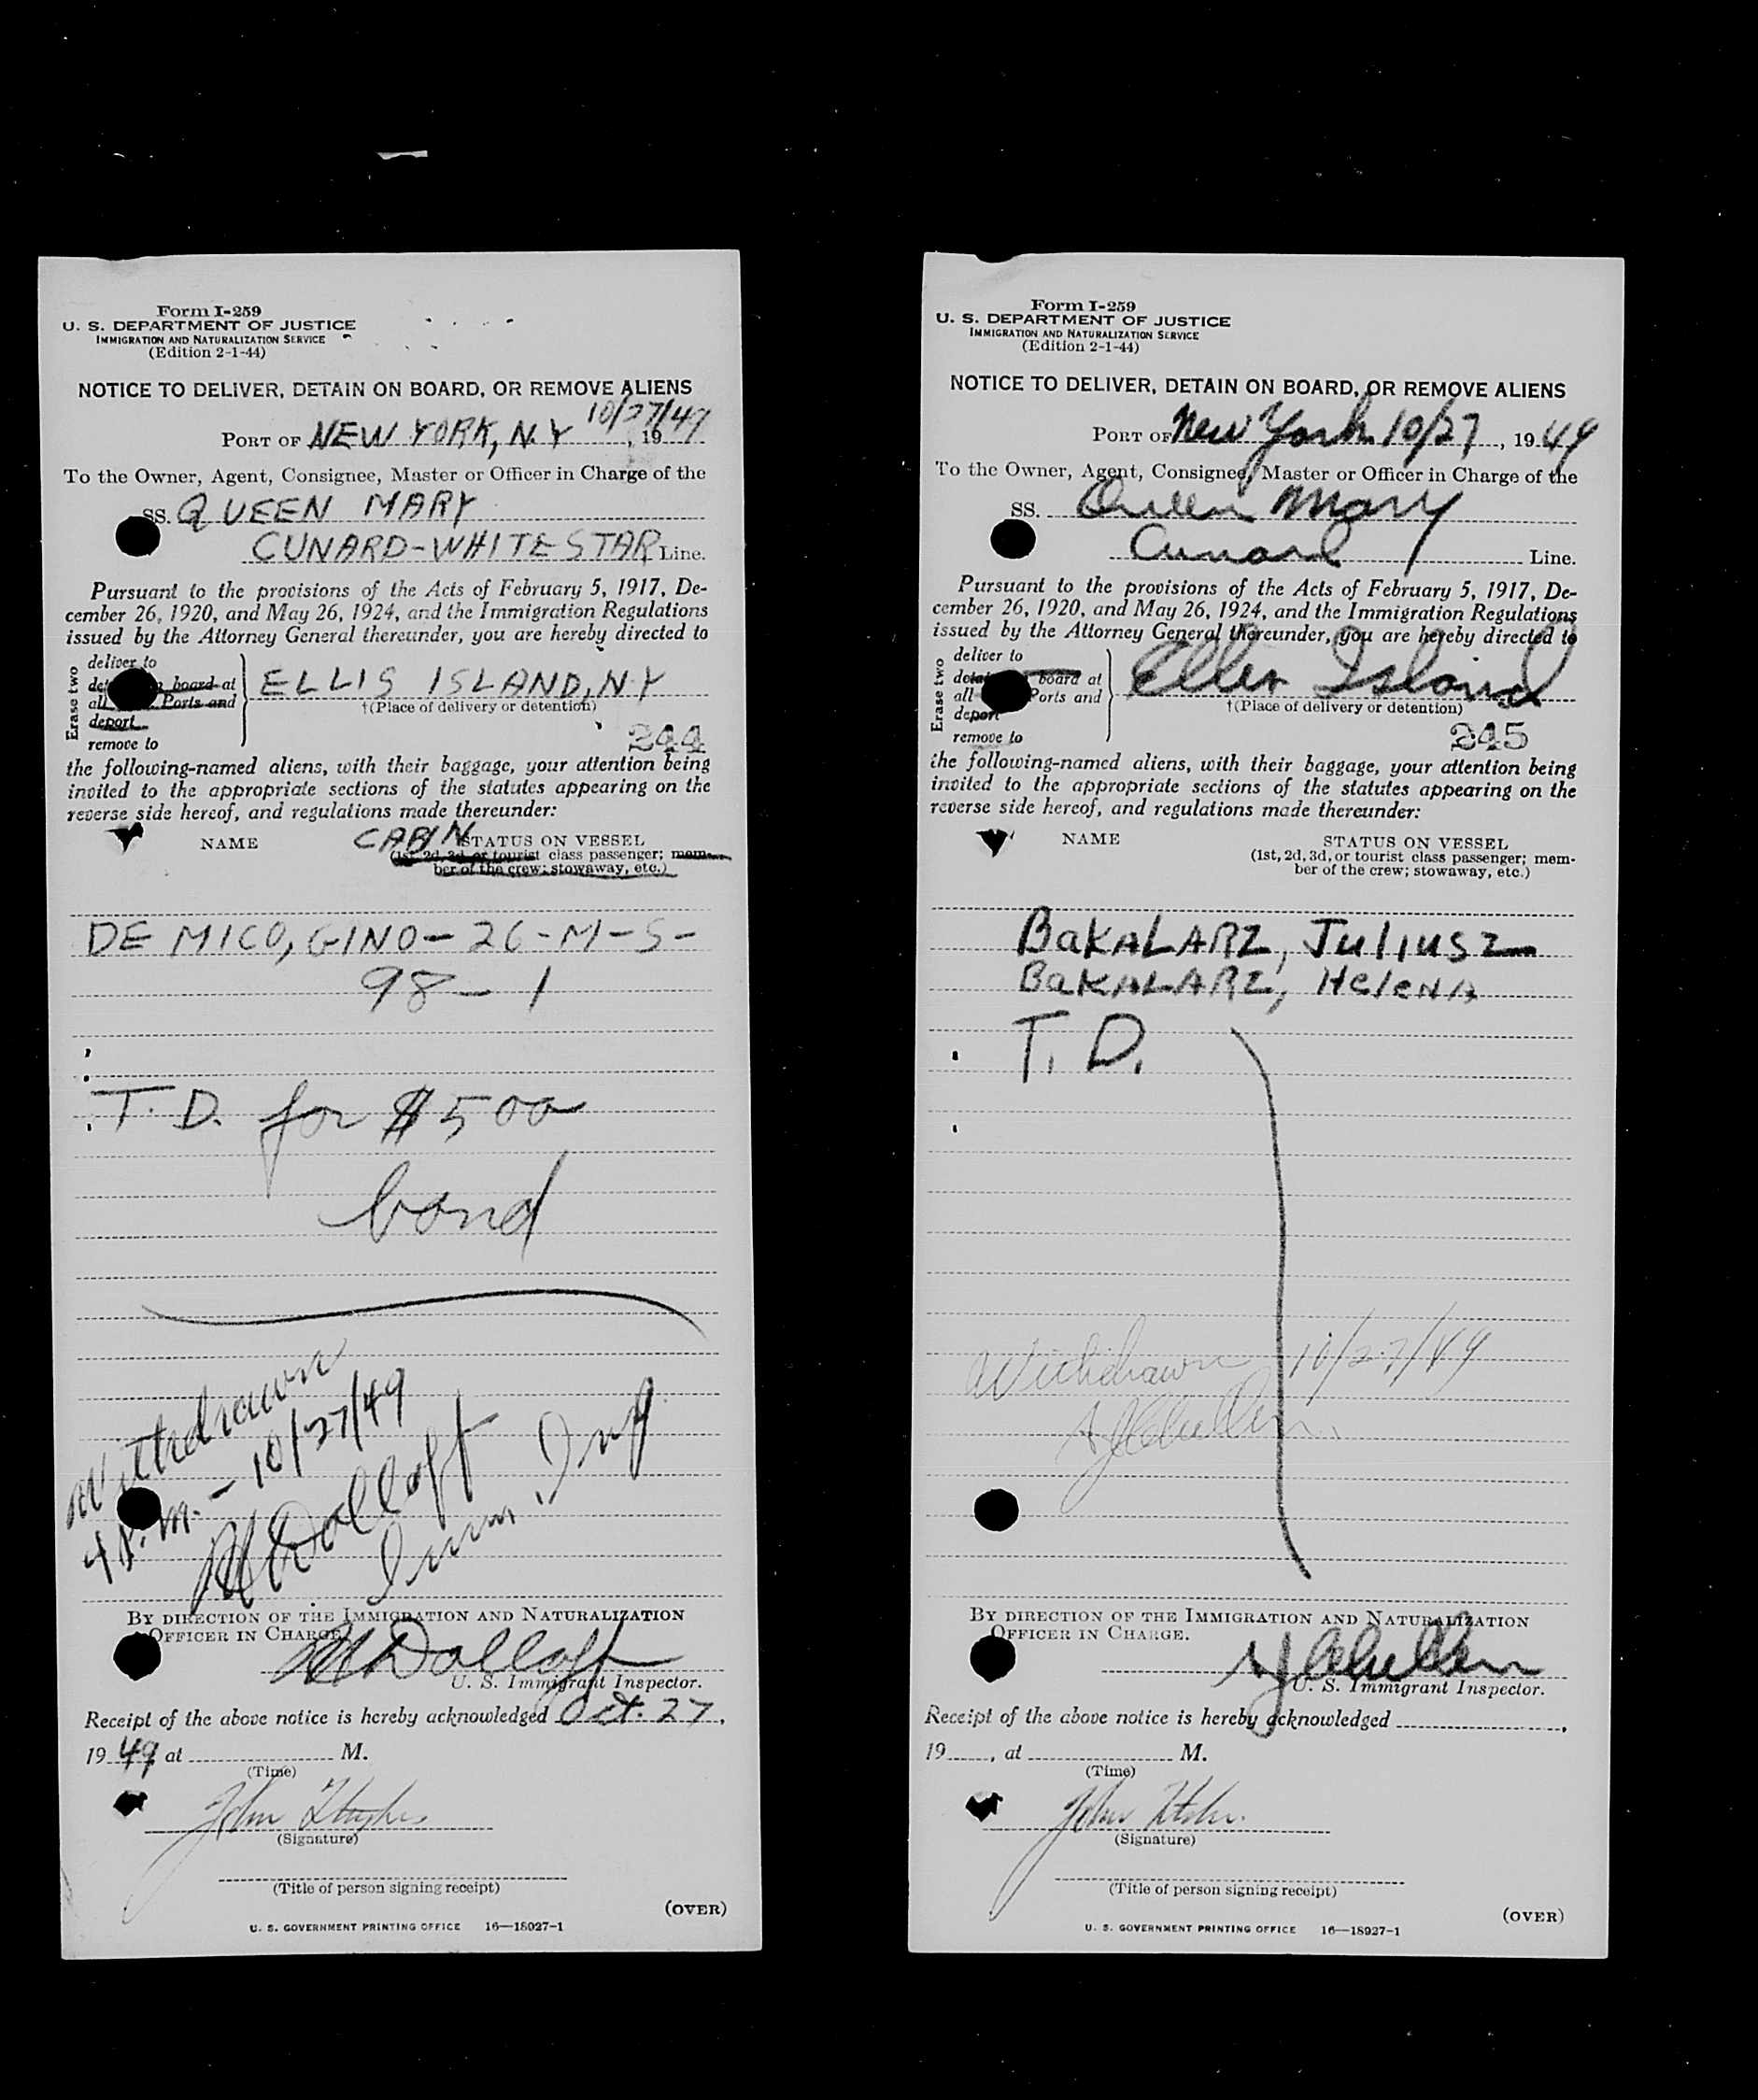 Form I-259
U. S. DEPARTMENT OF JUSTICE
IMMIGRATION AND NATURALIZATION SERVICE
(Edition 2-1-44)
NOTICE TO DELIVER, DETAIN ON BOARD, OR REMOVE ALIENS
10/27/49
PORT OF NEW YORK, N.Y , 19
To the Owner, Agent, Consignee, Master or Officer in Charge of the
SS. QUEEN MARY
CUNARD-WHITE STAR Line.
Pursuant to the provisions of the Acts of February 5, 1917, De-
cember 26, 1920, and May 26, 1924, and the Immigration Regulations
issued by the Attorney General thereunder, you are hereby directed to
Erase two
deliver to
board at
all Ports and
deport
remove to
ELLIS ISLAND, N.Y
†(Place of delivery or detention)
244
the following-named aliens, with their baggage, your attention being
invited to the appropriate sections of the statutes appearing on the
reverse side hereof, and regulations made thereunder:
NAME CABIN STATUS ON VESSEL
(1st, 2d, 3d, or tourist class passenger; mem-
ber of the crew; stowaway, etc.)
DE MICO, GINO - 26 - M - S -
98 - 1
T. D. for $500
bond
Withdrawn
4 P.M. - 10/27/49
Dolloff
Imm. Insp.
BY DIRECTION OF THE IMMIGRATION AND NATURALIZATION
OFFICER IN CHARGE.
Dolloff
U. S. Immigrant Inspector.
Receipt of the above notice is hereby acknowledged Oct. 27,
19 49, at M.
(Time)
John Hughes
(Signature)
(Title of person signing receipt)
(OVER)
U. S. GOVERNMENT PRINTING OFFICE 16—18927-1
Form I-259
U. S. DEPARTMENT OF JUSTICE
IMMIGRATION AND NATURALIZATION SERVICE
(Edition 2-1-44)
NOTICE TO DELIVER, DETAIN ON BOARD, OR REMOVE ALIENS
PORT OF New York 10/27, 19 49
To the Owner, Agent, Consignee, Master or Officer in Charge of the
SS. Queen Mary
Cunard Line.
Pursuant to the provisions of the Acts of February 5, 1917, De-
cember 26, 1920, and May 26, 1924, and the Immigration Regulations
issued by the Attorney General thereunder, you are hereby directed to
Erase two
deliver to
board at
all Ports and
deport
remove to
Ellis Island
†(Place of delivery or detention)
245
the following-named aliens, with their baggage, your attention being
invited to the appropriate sections of the statutes appearing on the
reverse side hereof, and regulations made thereunder:
NAME STATUS ON VESSEL
(1st, 2d, 3d, or tourist class passenger; mem-
ber of the crew; stowaway, etc.)
BaKALARZ, Juliusz
BaKALARZ, HeleNA
T. D.
Withdrawn 10/27/49
BY DIRECTION OF THE IMMIGRATION AND NATURALIZATION
OFFICER IN CHARGE.
U. S. Immigrant Inspector.
Receipt of the above notice is hereby acknowledged ,
19 , at M.
(Time)
John
(Signature)
(Title of person signing receipt)
(OVER)
U. S. GOVERNMENT PRINTING OFFICE 16—18927-1